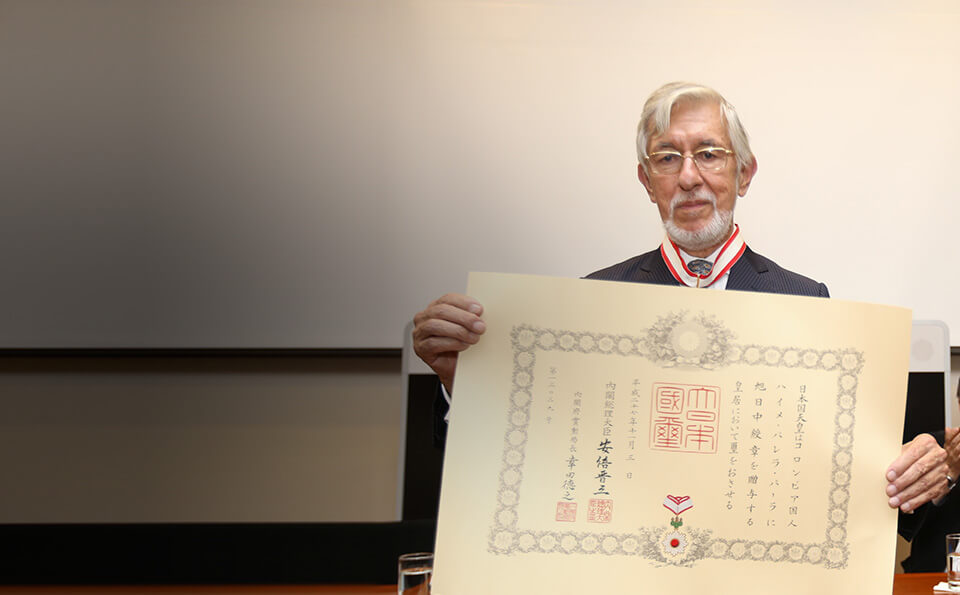 日本国天皇はコロンビア国人
ハイメ・バレラ・パーラに
旭日中綬章を贈与する
皇居において璽をおさせる
大日本
國璽
平成二十七年十一月三日
内閣総理大臣 安倍晋三
内閣府賞勲局長 幸田徳之